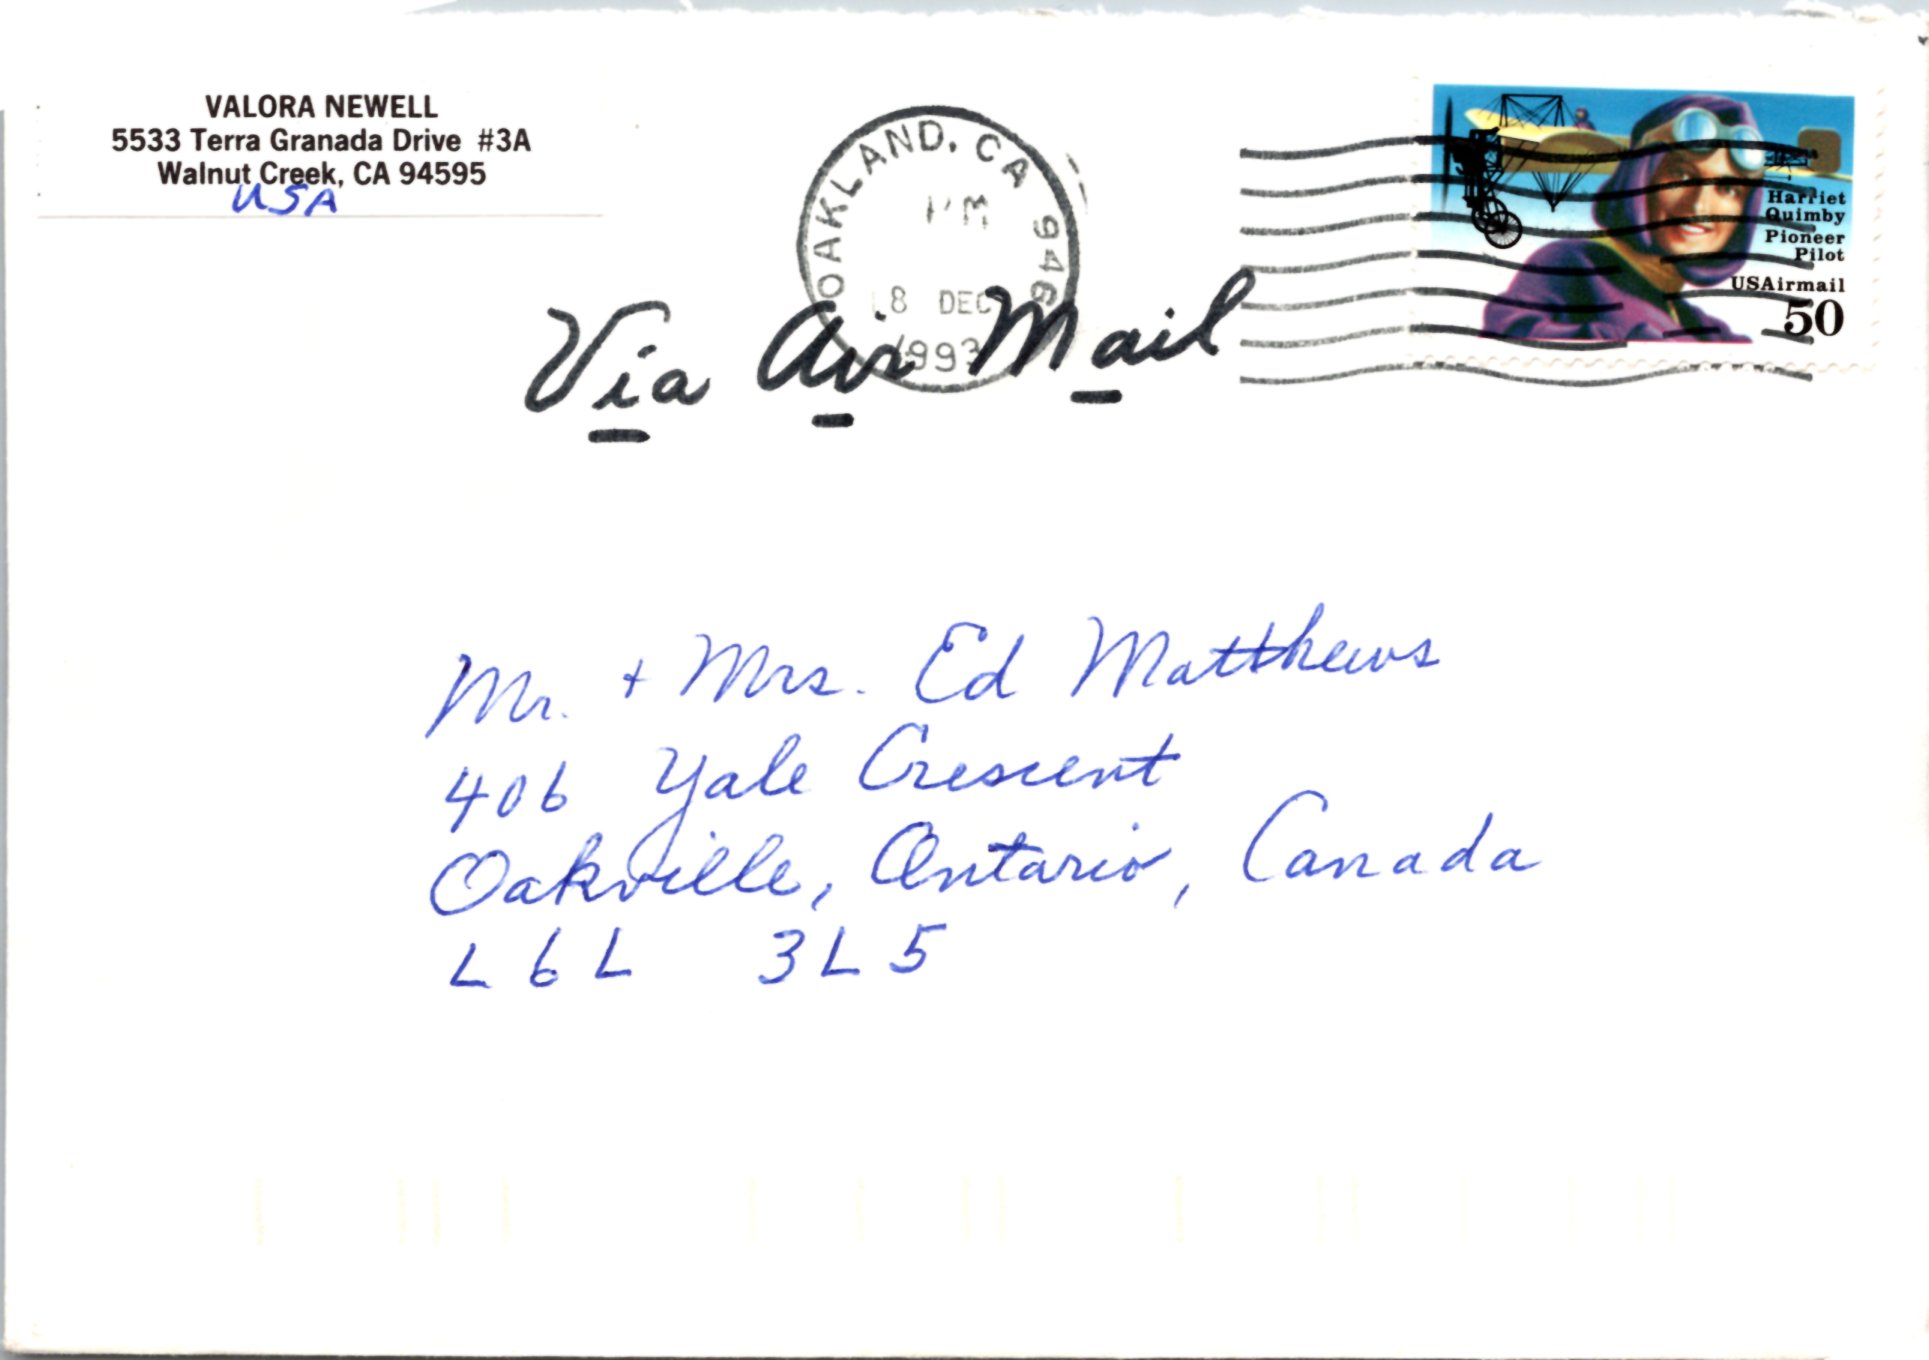 VALORA NEWELL
5533 Terra Granada Drive #3A
Walnut Creek, CA 94595
USA
OAKLAND, CA 946
PM
8 DEC
1993
Harriet
Quimby
Pioneer
Pilot
USAirmail
50
Via Air Mail
Mr. + Mrs. Ed Matthews
406 Yale Crescent
Oakville, Ontario, Canada
L6L 3L5